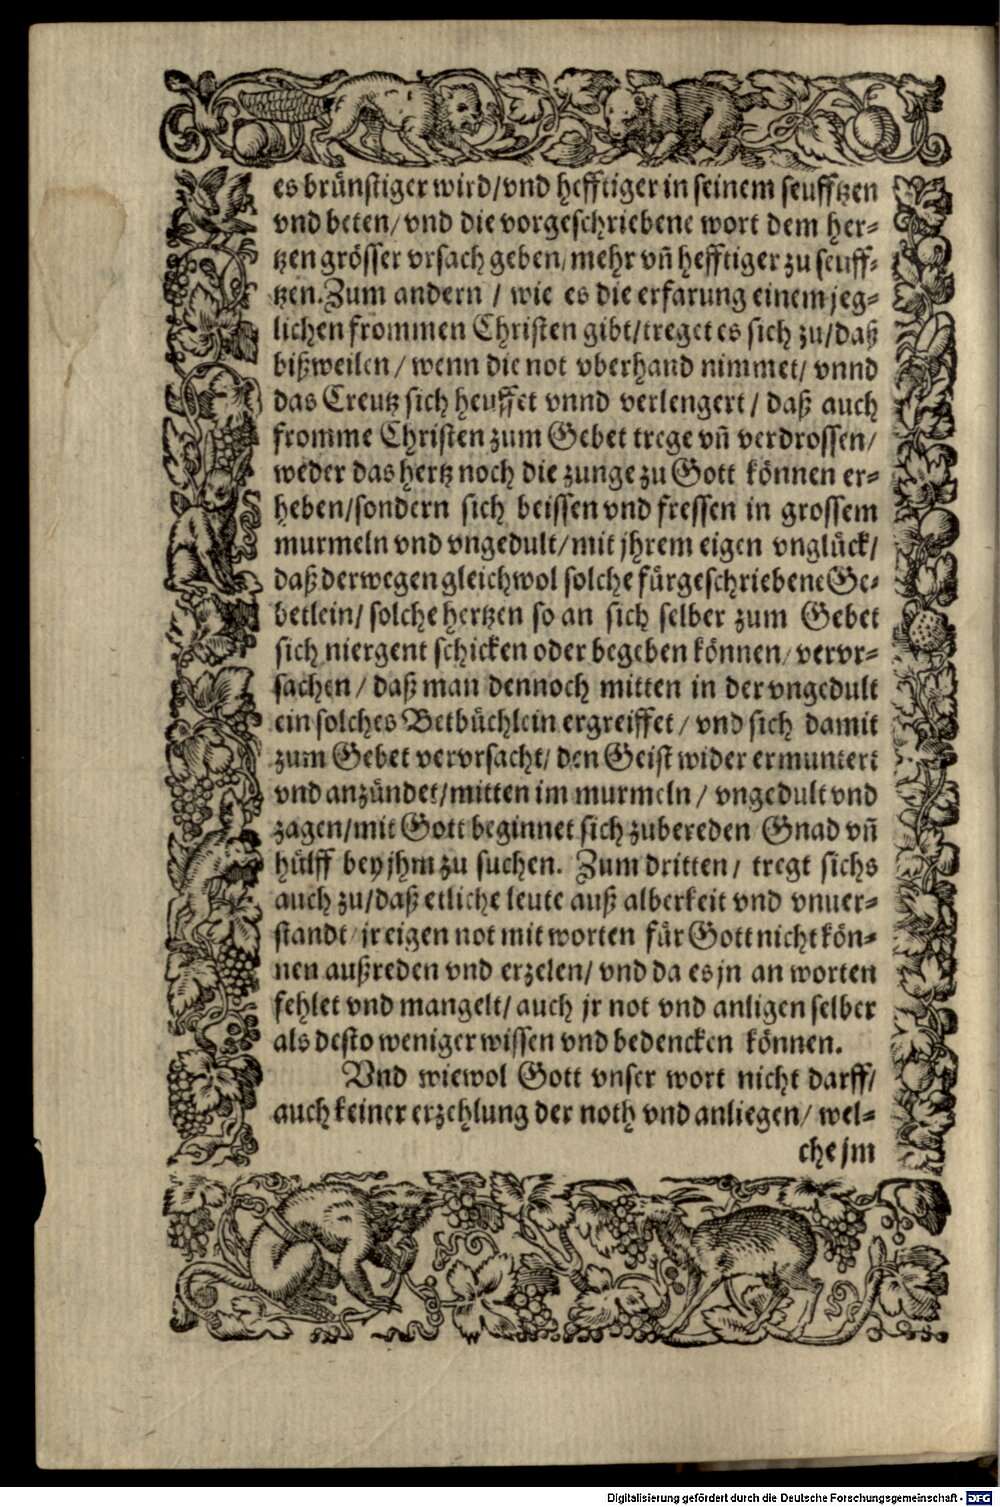 es brünstiger wird/vnd hefftiger in seinem seufftzen
vnd beten/ vnd die vorgeschriebene wort dem her-
tzen grösser vrsach geben/ mehr vn̄ hefftiger zu seuff-
tzen. Zum andern / wie es die erfarung einem jeg-
lichen frommen Christen gibt/treget es sich zu/daß
bißweilen / wenn die not vberhand nimmet/ vnnd
das Creutz sich heuffet vnnd verlengert / daß auch
fromme Christen zum Gebet trege vn̄ verdrossen/
weder das hertz noch die zunge zu Gott können er-
heben/sondern sich beissen vnd fressen in grossem
murmeln vnd vngedult/mit jhrem eigen vnglück/
daß derwegen gleichwol solche fürgeschriebene Ge-
betlein/ solche hertzen so an sich selber zum Gebet
sich niergent schicken oder begeben können/ vervr-
sachen / daß man dennoch mitten in der vngedult
ein solches Betbüchlein ergreiffet / vnd sich damit
zum Gebet vervrsacht/ den Geist wider ermuntert
vnd anzündet/mitten im murmeln / vngedult vnd
zagen/mit Gott beginnet sich zubereden Gnad vn̄
hülff bey jhm zu suchen. Zum dritten / tregt sichs
auch zu/daß etliche leute auß alberkeit vnd vnuer-
standt/ jr eigen not mit worten für Gott nicht kön-
nen außreden vnd erzelen/ vnd da es jn an worten
fehlet vnd mangelt/ auch jr not vnd anligen selber
als desto weniger wissen vnd bedencken können.
Vnd wiewol Gott vnser wort nicht darff/
auch keiner erzehlung der noth vnd anliegen/ wel-
che jm
Digitalisierung gefördert durch die Deutsche Forschungsgemeinschaft - DFG